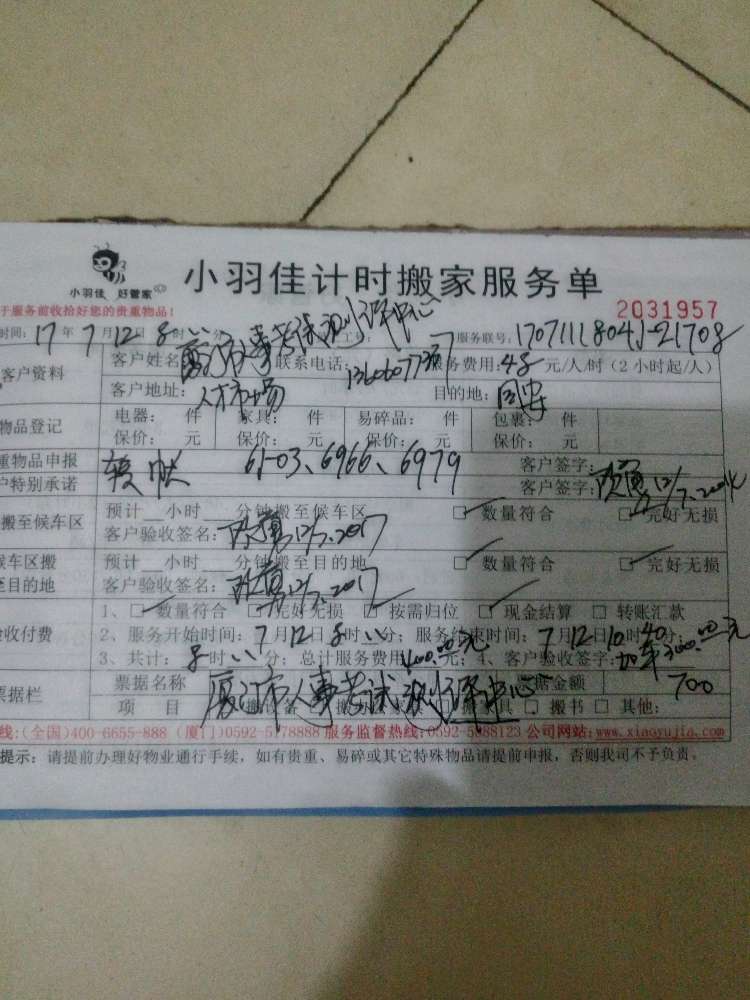 小羽佳 好管家
小羽佳计时搬家服务单
于服务前收拾好您的贵重物品！
2031957
时间：17年7月12日8时 分 服务联号：
客户资料 客户姓名 厦门市人事考试测评中心 联系电话： 服务费用：48元/人/时（2小时起/人）
客户地址：人才市场 目的地：同安
物品登记 电器： 件 家具： 件 易碎品： 件 包裹： 件
保价： 元 保价： 元 保价： 元 保价： 元
重物品申报 61-03、6966、6979 客户签字：
户特别承诺 客户签字：
搬至候车区 预计 小时 分钟搬至候车区 □数量符合 □完好无损
客户验收签名： 12/7.2017
候车区搬 预计 小时 分钟搬至目的地 □数量符合 □完好无损
至目的地 客户验收签名： 12/7.2017
1、□数量符合 □完好无损 □按需归位 □现金结算 □转账汇款
验收付费 2、服务开始时间：7月12日8时 分；服务结束时间：7月12日10时40分；
3、共计： 时 分；总计服务费用400.00元；4、客户验收签字： 加车300.00元
票据栏 票据名称 厦门市人事考试测评中心 票据金额 700
项 目 □搬书 □其他：
线：（全国）400-6655-888（厦门）0592-5178888 服务监督热线：0592-5888123 公司网站：www.xiaoyujia.com
提示：请提前办理好物业通行手续，如有贵重、易碎或其它特殊物品请提前申报，否则我司不予负责。